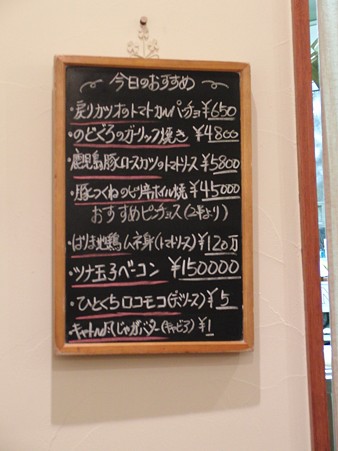 今日のおすすめ
・戻りカツオのトマトカルパッチョ ¥650
・のどぐろのガーリック焼き ¥4800
・鹿児島豚ロースカツのトマトソース ¥5800
・豚つくねの ホイル焼 ¥45000
おすすめピンチョス(2ヶより)
・はりま地鶏ムネ身(トマトソース) ¥120万
・ツナ玉子ベーコン ¥150000
・ひとくちロコモコ(デミソース) ¥5
じゃがバター(キャビア) ¥1